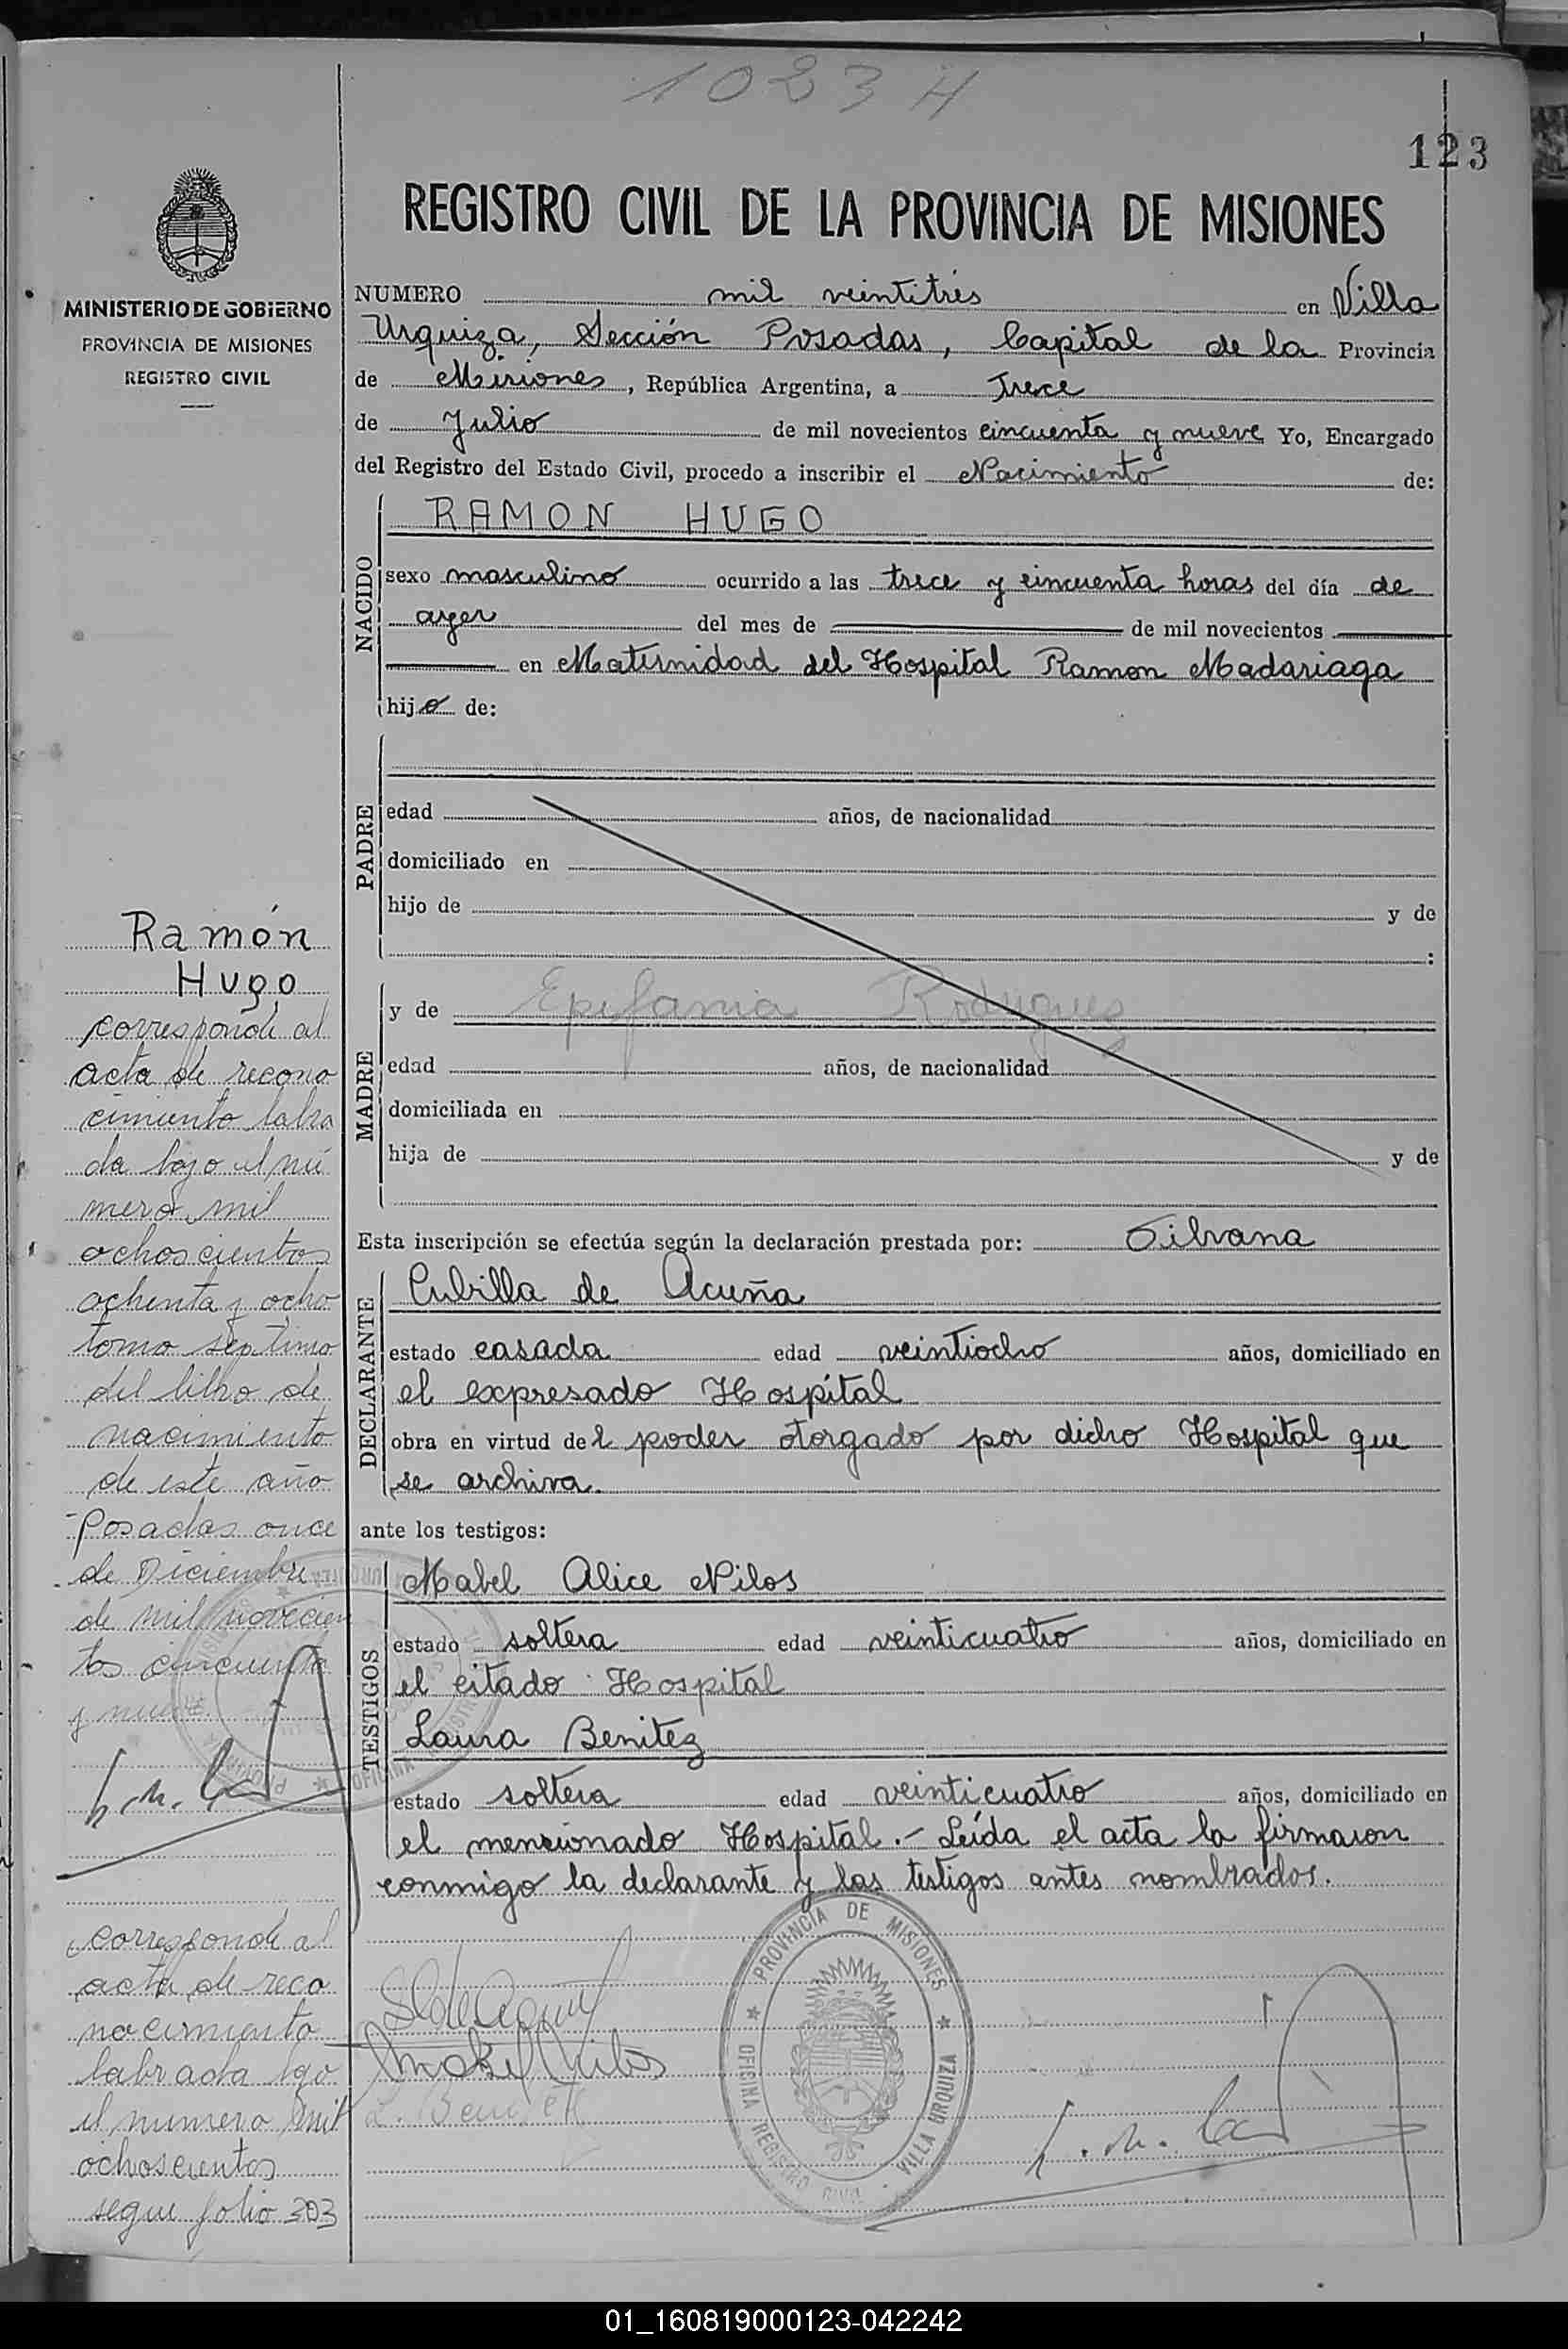 1023 H
123
MINISTERIO DE GOBIERNO
PROVINCIA DE MISIONES
REGISTRO CIVIL
REGISTRO CIVIL DE LA PROVINCIA DE MISIONES
NUMERO mil veintitrés en Villa
Urquiza, Sección Posadas, Capital de la Provincia
de Misiones, República Argentina, a Trece
de Julio de mil novecientos cincuenta y nueve Yo, Encargado
del Registro del Estado Civil, procedo a inscribir el Nacimiento de:
NACIDO
RAMON HUGO
sexo masculino ocurrido a las trece y cincuenta horas del día de
ayer del mes de de mil novecientos
en Maternidad del Hospital Ramon Madariaga
hijo de:
PADRE
edad años, de nacionalidad
domiciliado en
hijo de y de
:
MADRE
y de Epifania Rodriguez
edad años, de nacionalidad
domiciliada en
hija de y de
Esta inscripción se efectúa según la declaración prestada por: Silvana
DECLARANTE
Cubilla de Acuña
estado casada edad veintiocho años, domiciliado en
el expresado Hospital
obra en virtud del poder otorgado por dicho Hospital que
se archiva.
ante los testigos:
TESTIGOS
Mabel Alice Nilos
estado soltera edad veinticuatro años, domiciliado en
el citado Hospital
Laura Benitez
estado soltera edad veinticuatro años, domiciliado en
el mencionado Hospital.- Leída el acta la firmaron
conmigo la declarante y los testigos antes nombrados.
PROVINCIA DE MISIONES
OFICINA REGISTRO CIVIL VILLA URQUIZA
Ramón
Hugo
corresponde al
acta de recono
cimiento labra
da bajo el nú
mero mil
ochoscientos
ochenta y ocho
tomo septimo
del libro de
nacimiento
de este año
Posadas once
de Diciembre
de mil novecien
tos cincuenta
y nueve
corresponde al
acta de reco
nocimiento
labrada bajo
el numero mil
ochoscientos
segue folio 303
01_160819000123-042242